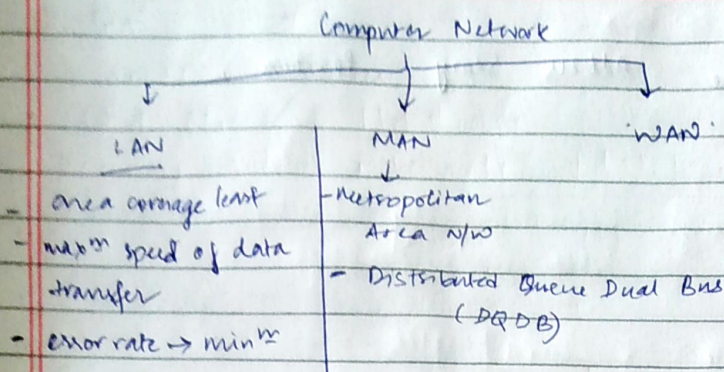 Computer Network
LAN
MAN
WAN
- area coverage least
- max^m speed of data
transfer
- error rate → min^m
- Metropolitan
Area N/W
- Distributed Queue Dual Bus
(DQDB)